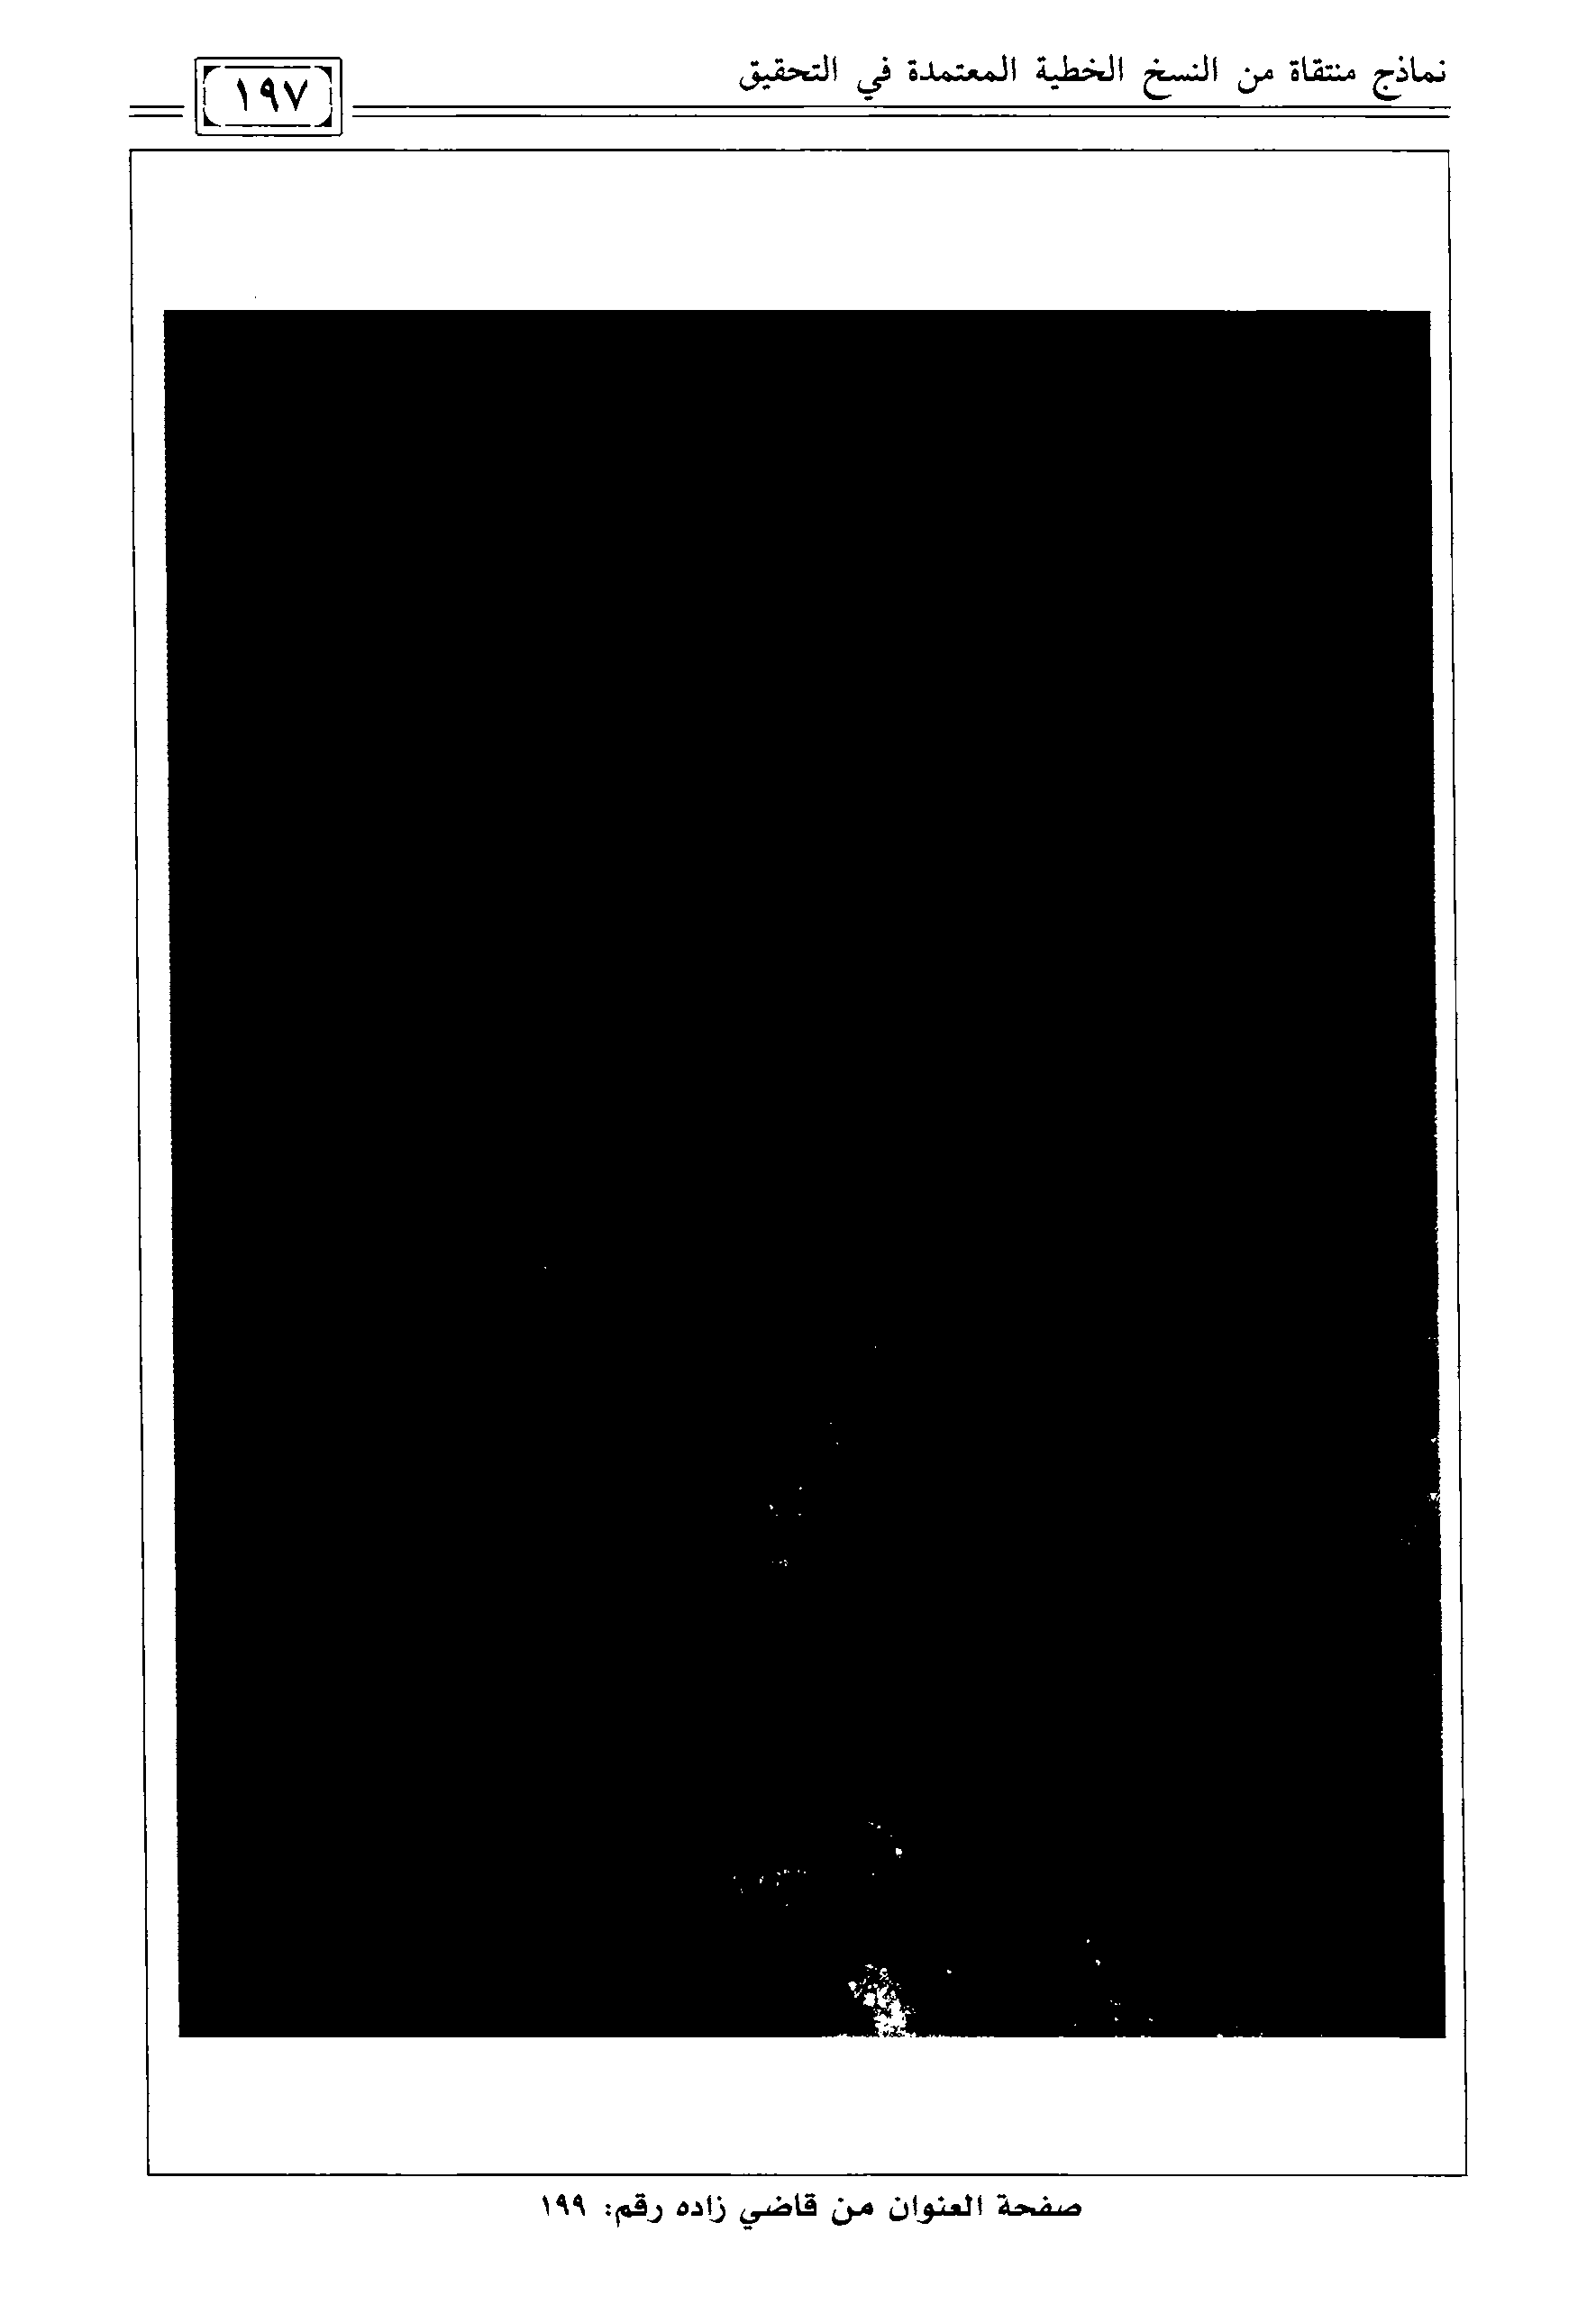 نماذج منتقاة من النسخ الخطية المعتمدة في التحقيق
١٩٧
صفحة العنوان من قاضي زاده رقم: ١٩٩